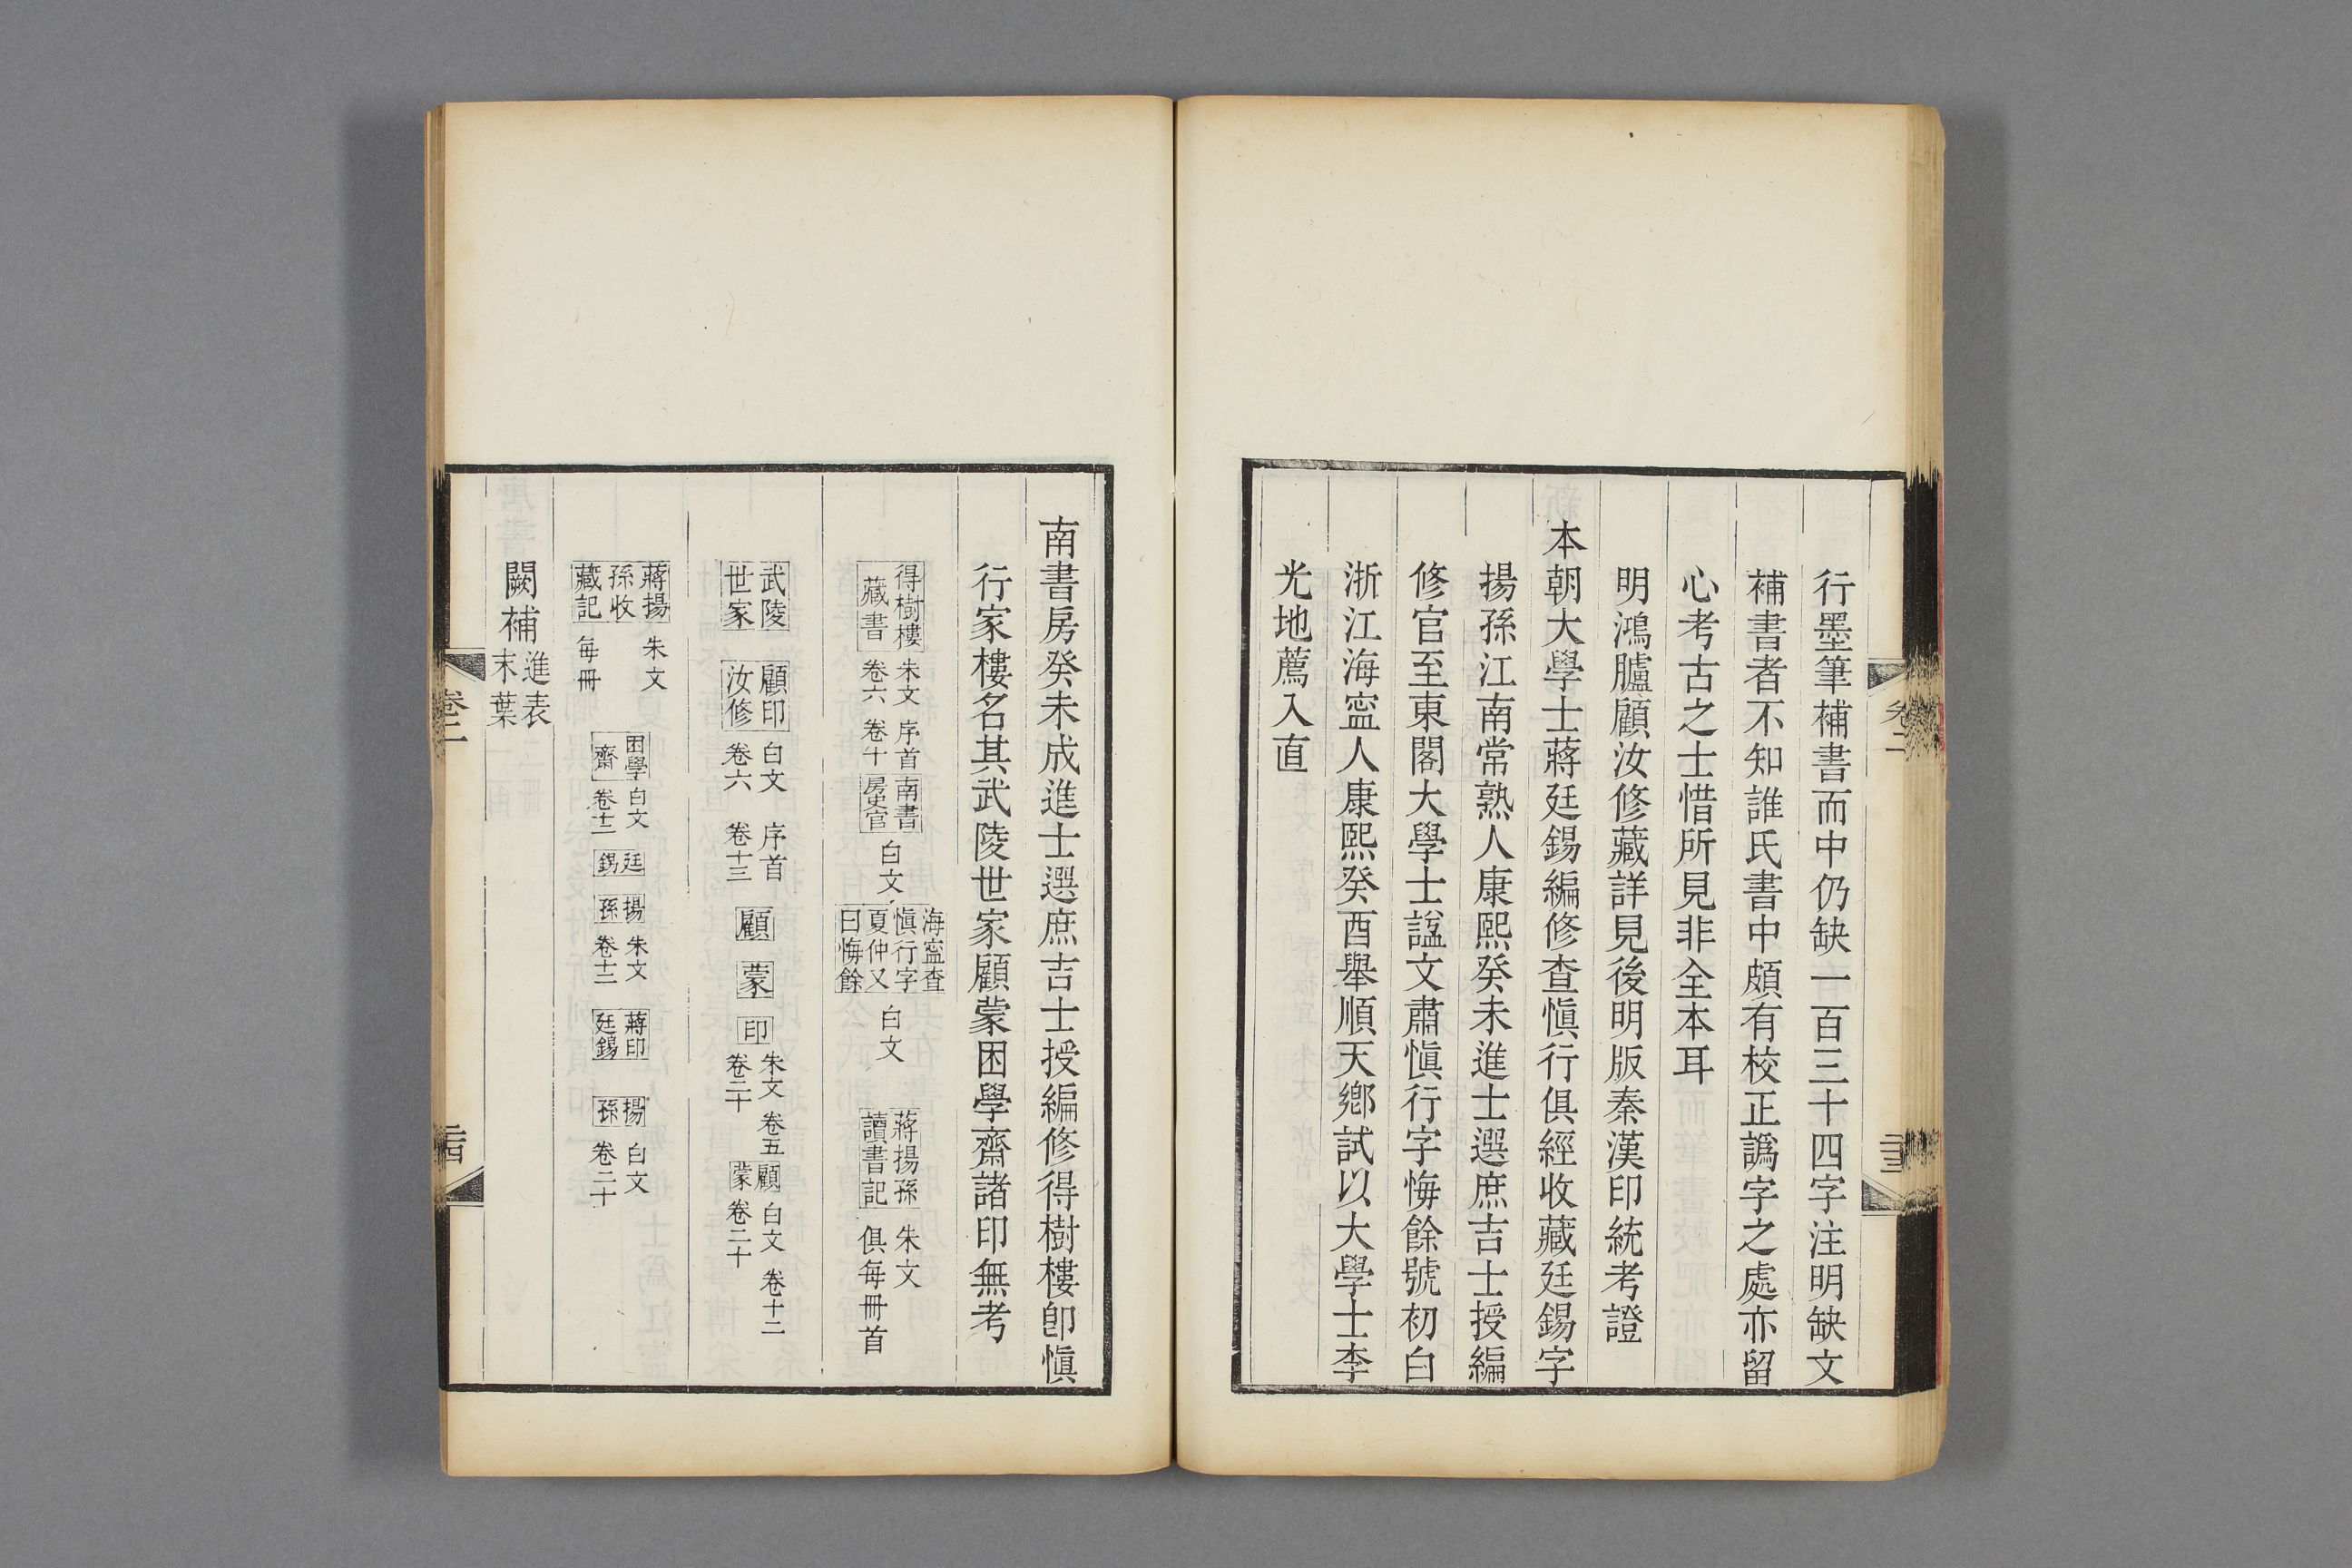 行墨筆補書而中仍缺一百三十四字注明缺文
補書者不知誰氏書中頗有校正譌字之處亦留
心考古之士惜所見非全本耳
明鴻臚顧汝修藏詳見後明版秦漢印統考證
本朝大學士蔣廷錫編修查愼行俱經收藏廷錫字
揚孫江南常熟人康熙癸未進士選庶吉士授編
修官至東閣大學士諡文肅愼行字悔餘號初白
浙江海寧人康熙癸酉舉順天鄉試以大學士李
光地薦入直
卷二
二十三
南書房癸未成進士選庶吉士授編修得樹樓卽愼
行家樓名其武陵世家顧蒙困學齋諸印無考
得樹樓
藏書
朱文 序首
卷六 卷十
南書
房史官
白文
海寧查
愼行字
夏仲又
曰悔餘
白文
蔣揚孫
讀書記
朱文
俱每冊首
武陵
世家
顧印
汝修
白文 序首
卷六 卷十三
顧
蒙
印
朱文 卷五
卷二十
顧
蒙
白文 卷十二
卷二十
蔣揚
孫收
藏記
朱文
每冊
困學
齋
白文
卷十二
廷
錫
揚
孫
朱文
卷十二
蔣印
廷錫
揚
孫
白文
卷二十
闕補
進表
末葉
卷二
二十四